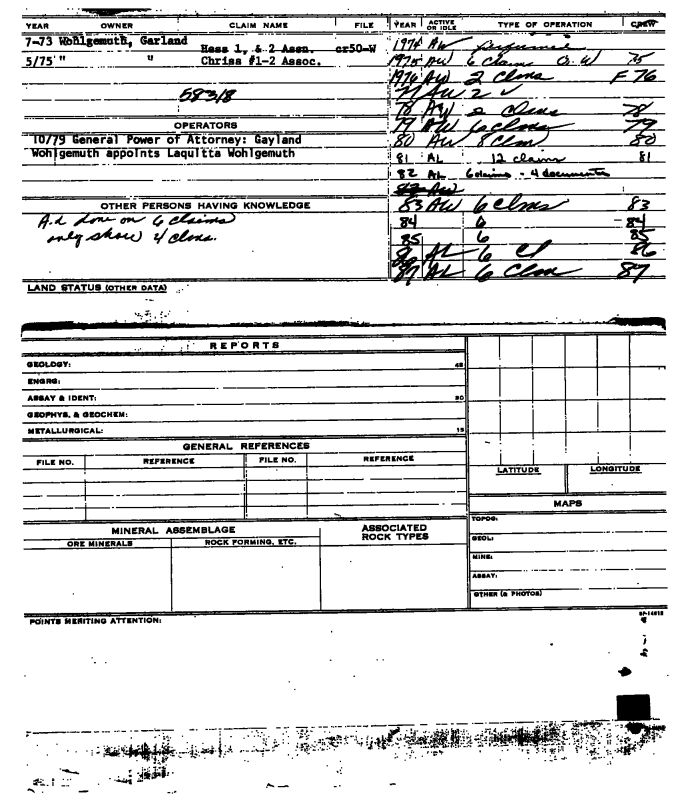 YEAR OWNER CLAIM NAME FILE YEAR ACTIVE OR IDLE TYPE OF OPERATION CREW
7-73 Wohlgemuth, Garland Hess 1, & 2 Assn. cr50-W
5/75 " " Chriss #1-2 Assoc.
58318
OPERATORS
10/79 General Power of Attorney: Gayland
Wohlgemuth appoints Laquitta Wohlgemuth
OTHER PERSONS HAVING KNOWLEDGE
A.L. done on 6 claims
only show 4 clms.
LAND STATUS (OTHER DATA)
1974 AW
1975 AW 6 claims 75
1976 AW 2 clms F 76
77 AW 2
78 AW 2 Clms 78
79 AW 6 clms 79
80 AW 8 Clm 80
81 AL 12 claims 81
82 AL 6 claims - 4 documents
82 AW
83 AW 6 clms 83
84 6 84
85 6 85
86 AL 6 Cl 86
87 AL 6 Clm 87
REPORTS
GEOLOGY: 45
ENGRG:
ASSAY & IDENT: 30
GEOPHYS. & GEOCHEM:
METALLURGICAL: 15
GENERAL REFERENCES
FILE NO. REFERENCE FILE NO. REFERENCE
LATITUDE LONGITUDE
MAPS
TOPOG:
GEOL:
MINE:
ASSAY:
OTHER (& PHOTOS)
MINERAL ASSEMBLAGE ASSOCIATED ROCK TYPES
ORE MINERALS ROCK FORMING, ETC.
POINTS MERITING ATTENTION: